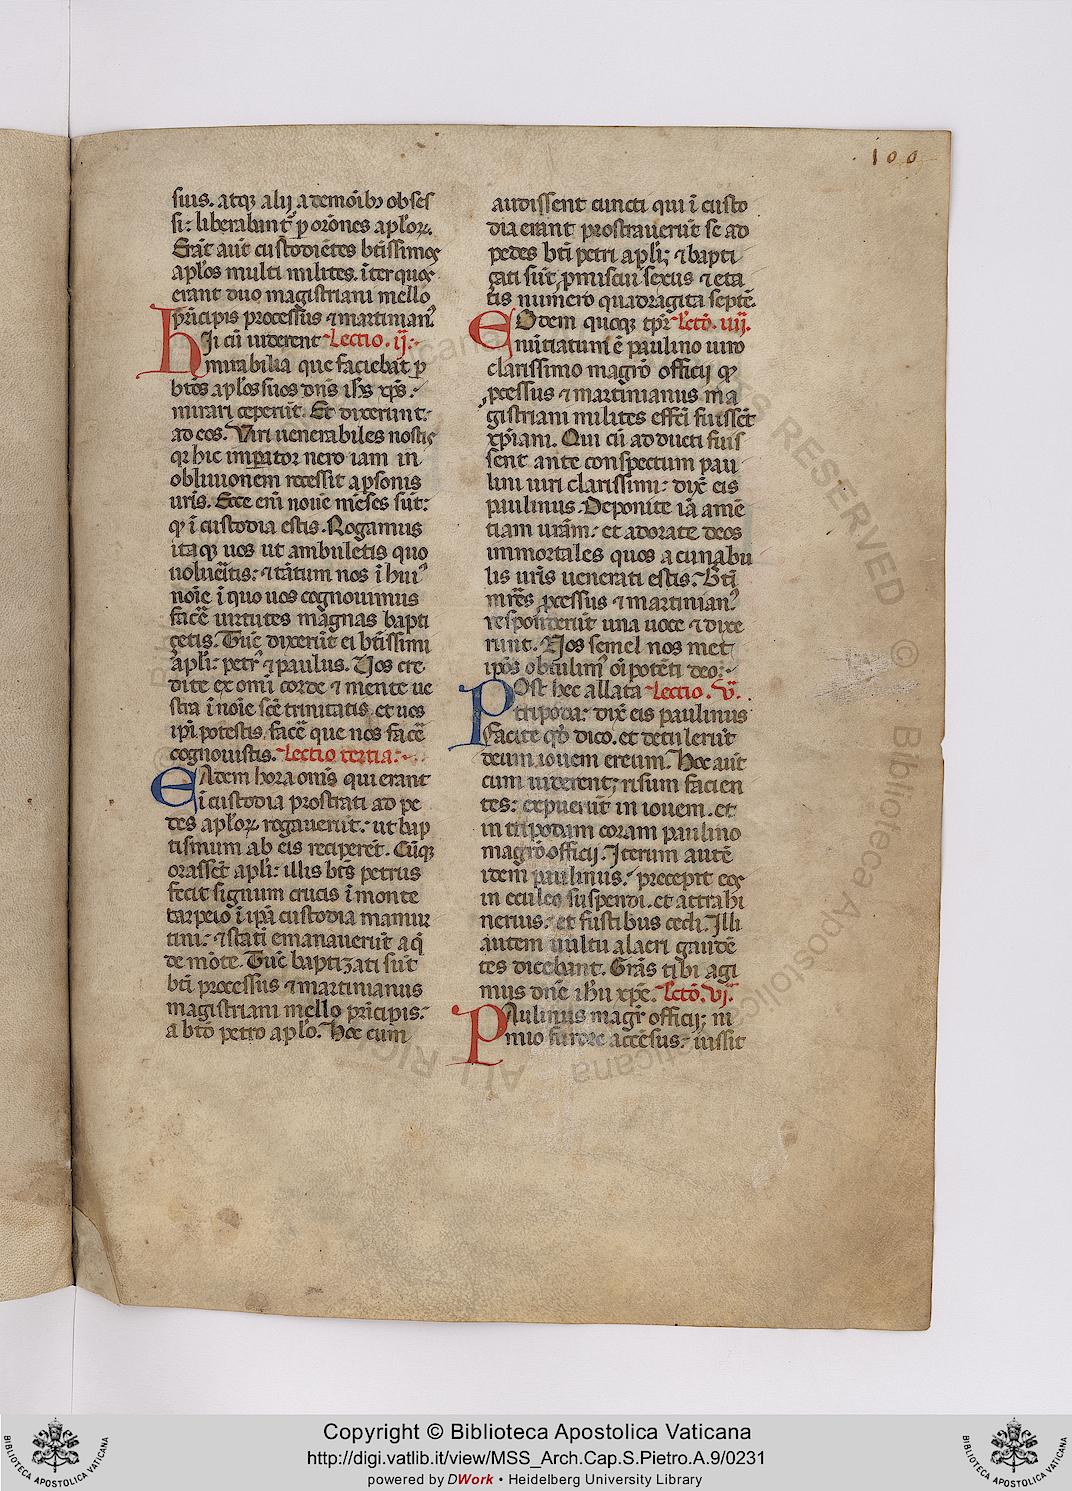 100
suis. atqꝫ alij a demōibꝰ obses
si: liberabunt᷑ ꝑ orōnes apłoꝝ.
Erāt aut̄ custodiētes bt̄issimos
apłos multi milites. īter quos
erant duo magistriani mello
pͥncipis processus ⁊ martinianꝰ.
Hii cū viderent Lectio. ij.
mirabilia que faciebāt ꝑ
bt̄os apłos suos dn̄s ihs xp̄s.
mirari ceperūt. Et dixerunt
ad eos. Viri uenerabiles nostis
qꝛ hic imꝑator nero iam in
obliuionem recessit a ꝑsonis
ur̄is. Ecce eni noue mēses sūt:
qꝫ ī custodia estis. Rogamus
itaqꝫ uos ut ambuletis quo
uoluēitis: ⁊ tātum nos ī huiꝰ
noīe ī quo uos cognouimus
facē uirtutes magnas bapti
çetis. Tūc dixerūt ei bt̄issimi
apłi: petrꝰ ⁊ paulus. Uos cre
dite ex omī corde ⁊ mente ue
stra ī noīe scē trinitatis. et uos
ipi potestis facē que nos facē
cognouistis. Lectio tertia.
Eadem hora om̄s qui erant
ī custodia prostrati ad pe
des apłoꝝ rogauerūt. ut bap
tismum ab eis reciperēt. Cūqꝫ
orassēt apłi: illis bt̄s petrus
fecit signum crucis ī monte
tarpeio ī ip̄a custodia mamur
tini: ⁊ statī emanauerūt aq̄
de mōte. Tūc baptizati sūt
bt̄i processus ⁊ martinianus
magistriani mello pͥncipis:
a bt̄o petro apło. Hoc cum
audissent cuncti qui ī custo
dia erant prostrauerūt se ad
pedes bt̄i petri apłi; ⁊ bapti
çati sūt, ꝓmiscui sexus ⁊ eta
tis numero quadragīta septē.
Eodem quoqꝫ tp̄r Lectō. iiij.
nūtiatum ē paulino uiro
clarissimo magrō officij qꝫ
ꝓcessus ⁊ martinianus ma
gistriani milites effēi fuissēt
xp̄iani. Qui cū adducti fuis
sent ante conspectum pau
lini uiri clarissimi: dix̄ eis
paulinus. Deponite iā amē
tiam ur̄am: et adorate deos
immortales quos a cunabu
lis ur̄is uenerati estis. Bt̄i
mr̄es ꝓcessus ⁊ martinianꝰ
responderūt una uoce ⁊ dixe
runt. Nos semel nos met
ipōs obtulimꝰ oīpotēti deo:
Post hec allata Lectio. v.
tripoda: dix̄ eis paulinus
Facite qđ dico. et detulerūt
deum iouem ereum. Hoc aut̄
cum uiderent; risum facien
tes: expuerūt in iouem. et
in tripodam coram paulino
magrō officij. Iterum autē
idem paulinus: precepit eos
in eculeo suspendi. et attrahi
neruis: et fustibus cedi. Illi
autem uultu alacri gaudē
tes dicebant. Grās tibi agi
mus dn̄e ihū xp̄e. Lectō. vj.
Paulinus magr̄ officij; ni
mio furore accēsus: iussit
Copyright © Biblioteca Apostolica Vaticana
http://digi.vatlib.it/view/MSS_Arch.Cap.S.Pietro.A.9/0231
powered by DWork • Heidelberg University Library